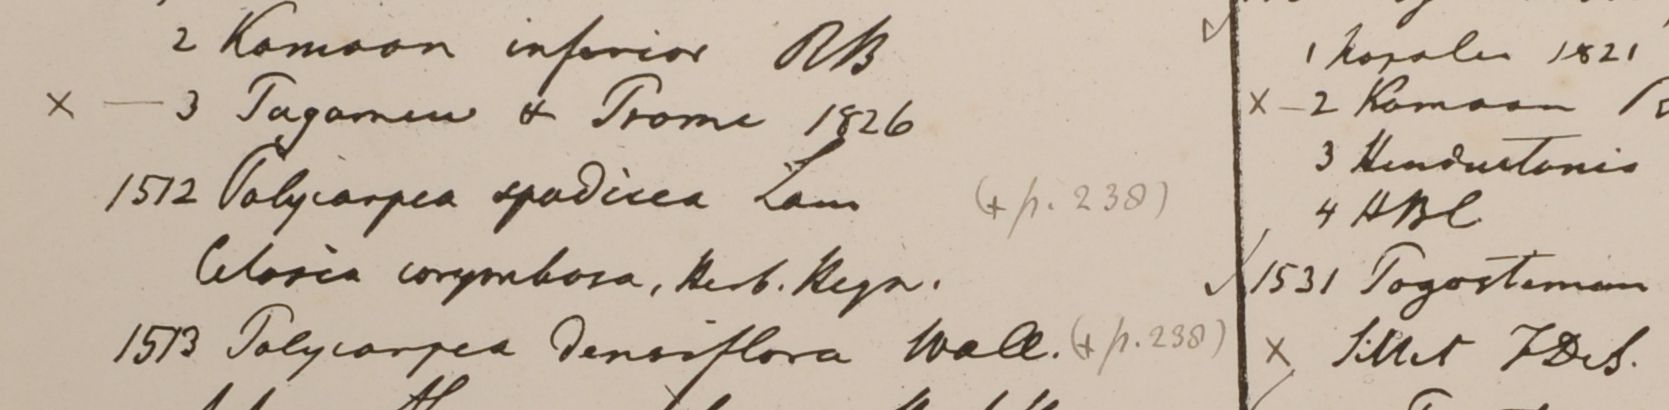 2 Kamaon inferior RB
x — 3 Tagamew & Prome 1826
1512 Polycarpea spadicea Lam (+ p. 238)
Celosia corymbosa, Herb. Heyn.
1513 Polycarpea densiflora Wall. (+ p. 238)
1 Napalia 1821
x – 2 Kamaon
3 Hindustania
4 HBC
1531 Pogostemon
x Sillet FDeS.